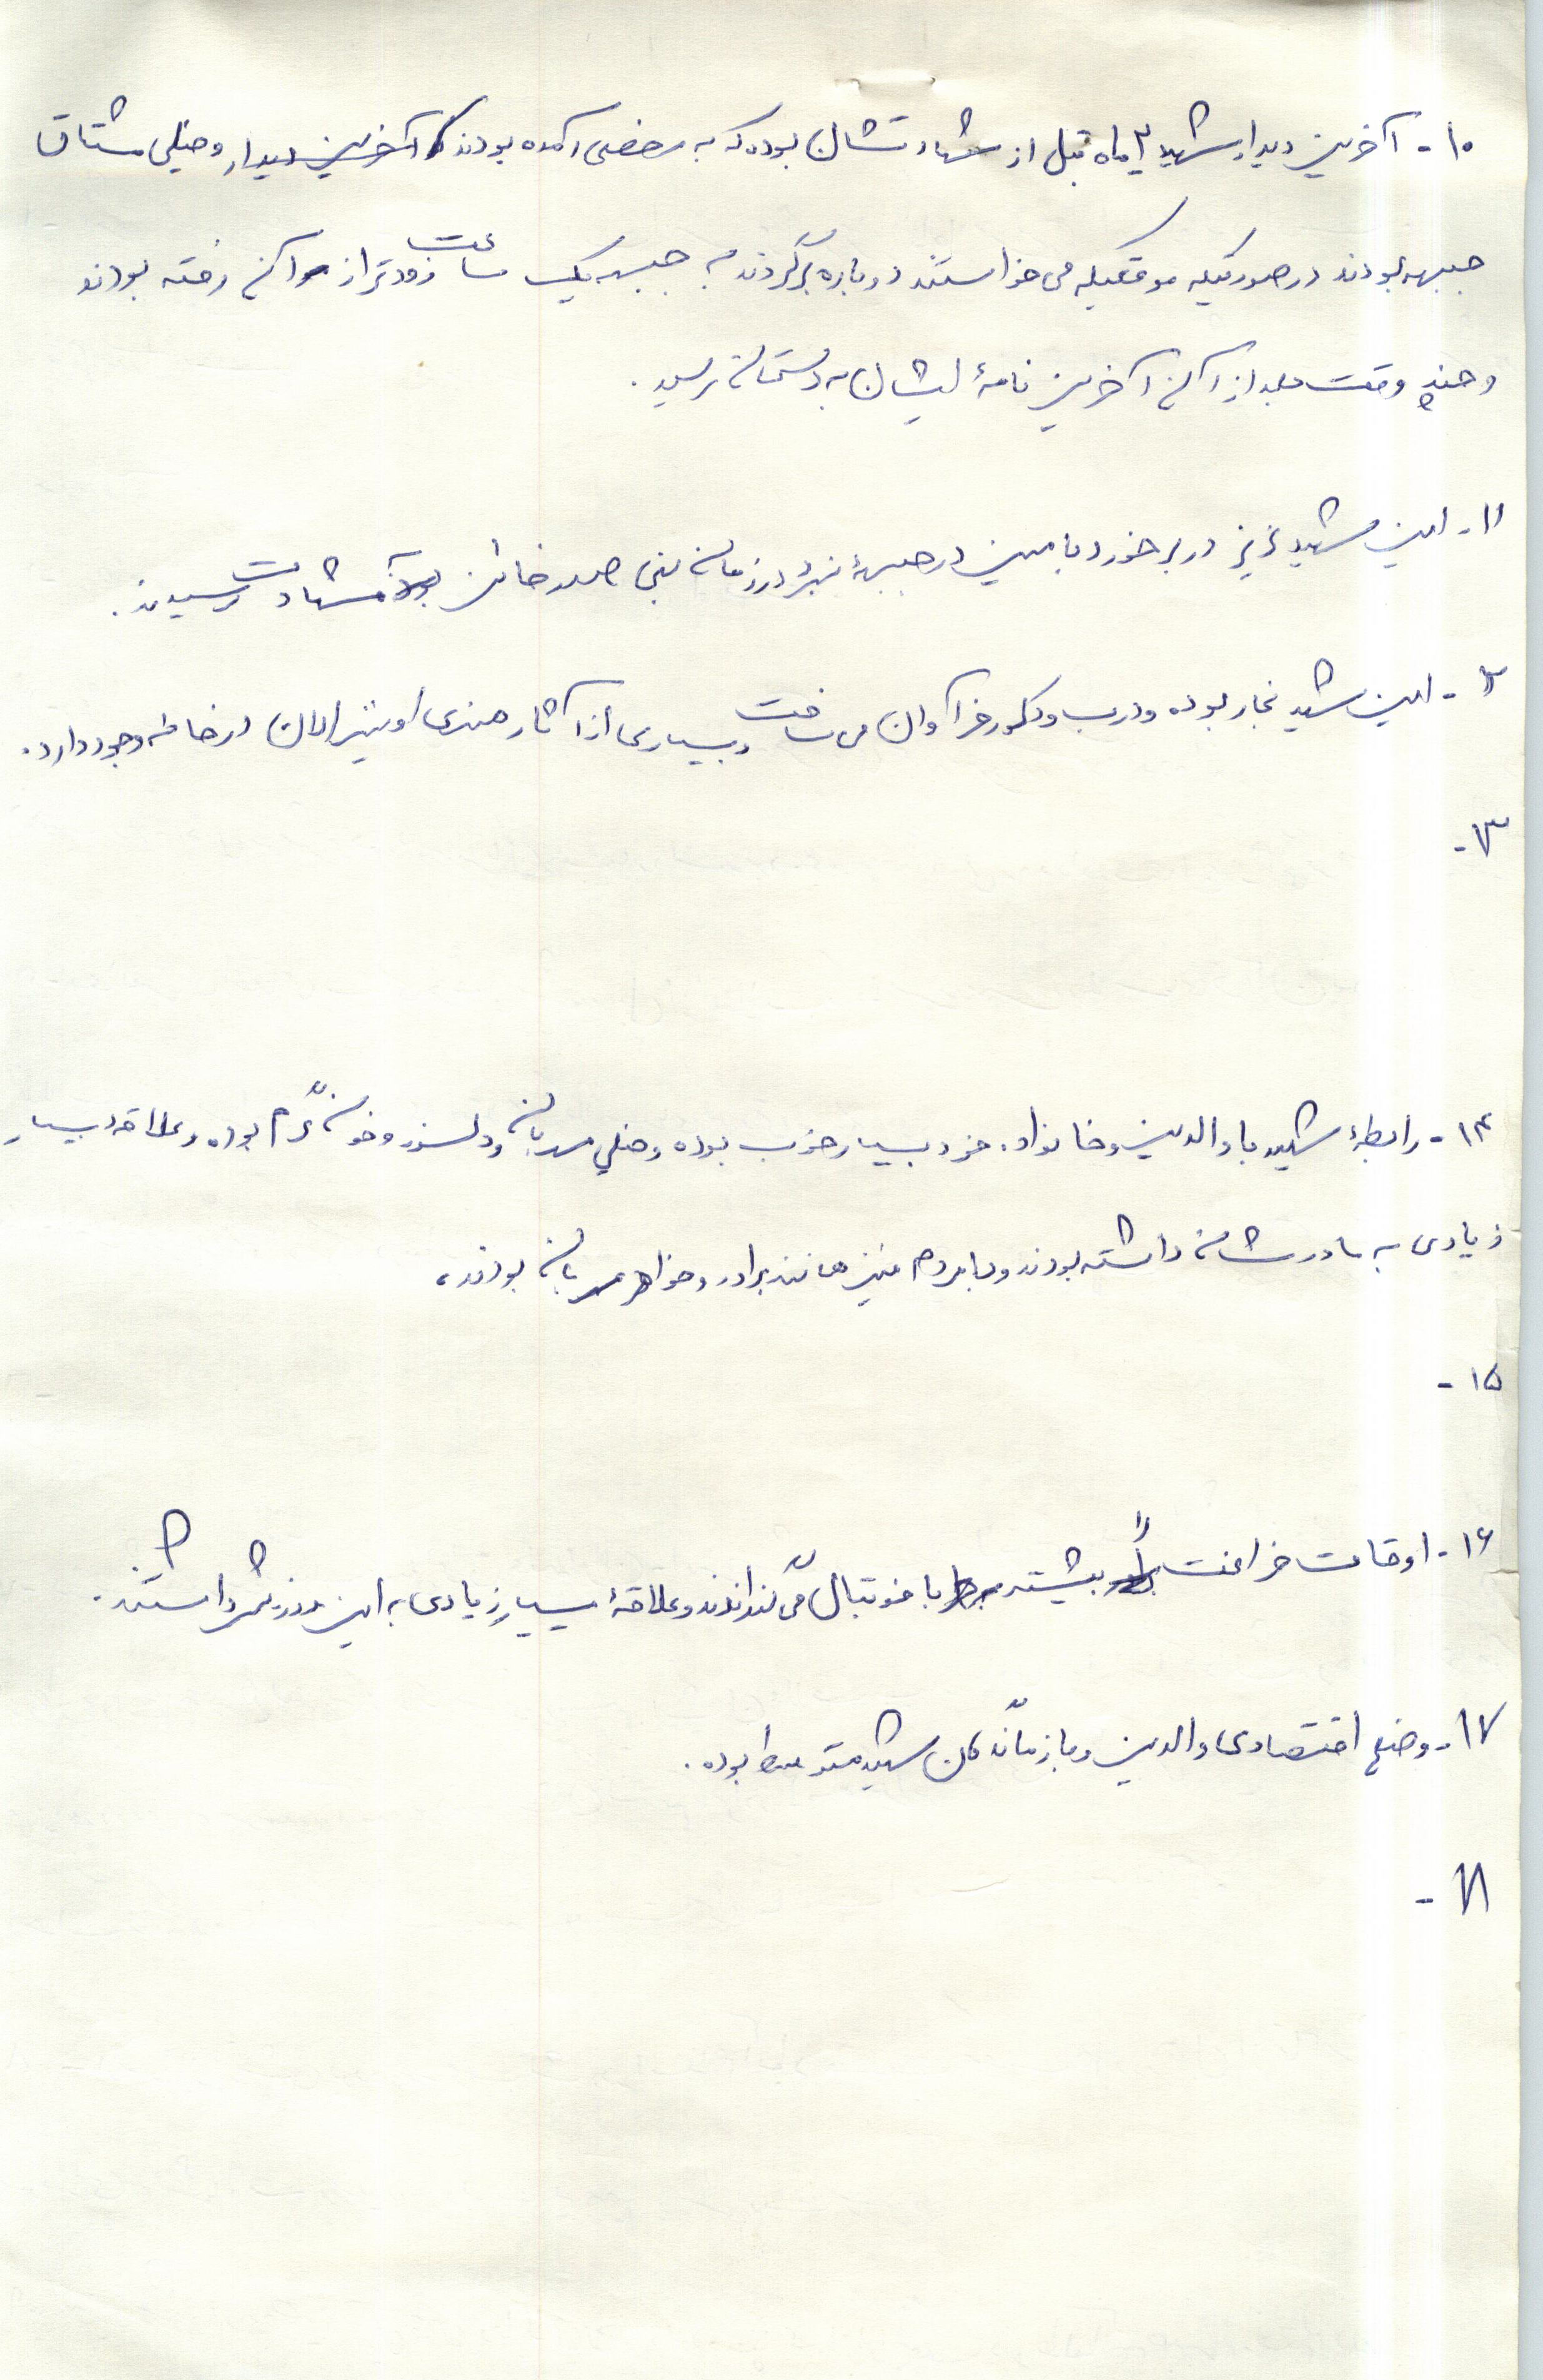 ۱۰- آخرین دیدار شهید ۲ ماه قبل از شهادتشان بوده که به مرخصی آمده بودند آخرین دیدار و خیلی مشتاق
جبهه بودند در صورتیکه موقعیکه می خواستند دوباره برگردند به جبهه یک ساعت زودتر از آن رفته بودند
و چند وقت بعد از آن آخرین نامهٔ ایشان به دستمان رسید.
۱۱- این شهید عزیز در برخورد با مین در جبههٔ نبرد در زمان بنی صدر خائن به شهادت رسیدند.
۱۲- این شهید نجار بوده و درب و کمد فراوان می ساخت و بسیاری از آثار هنری او نیز الان در خانه وجود دارد.
۱۳-
۱۴- رابطهٔ شهید با والدین و خانواده خود بسیار خوب بوده و خیلی مهربان و دلسوز و خون گرم بوده و علاقه بسیار
زیادی به مادرشان داشته بودند و با مردم نیز مانند برادر و خواهر مهربان بودند.
۱۵-
۱۶- اوقات فراغت را بیشتر با فوتبال می گذراندند و علاقهٔ بسیار زیادی به این ورزش داشتند.
۱۷- وضع اقتصادی والدین و بازماندگان شهید متوسط بوده.
۱۸-